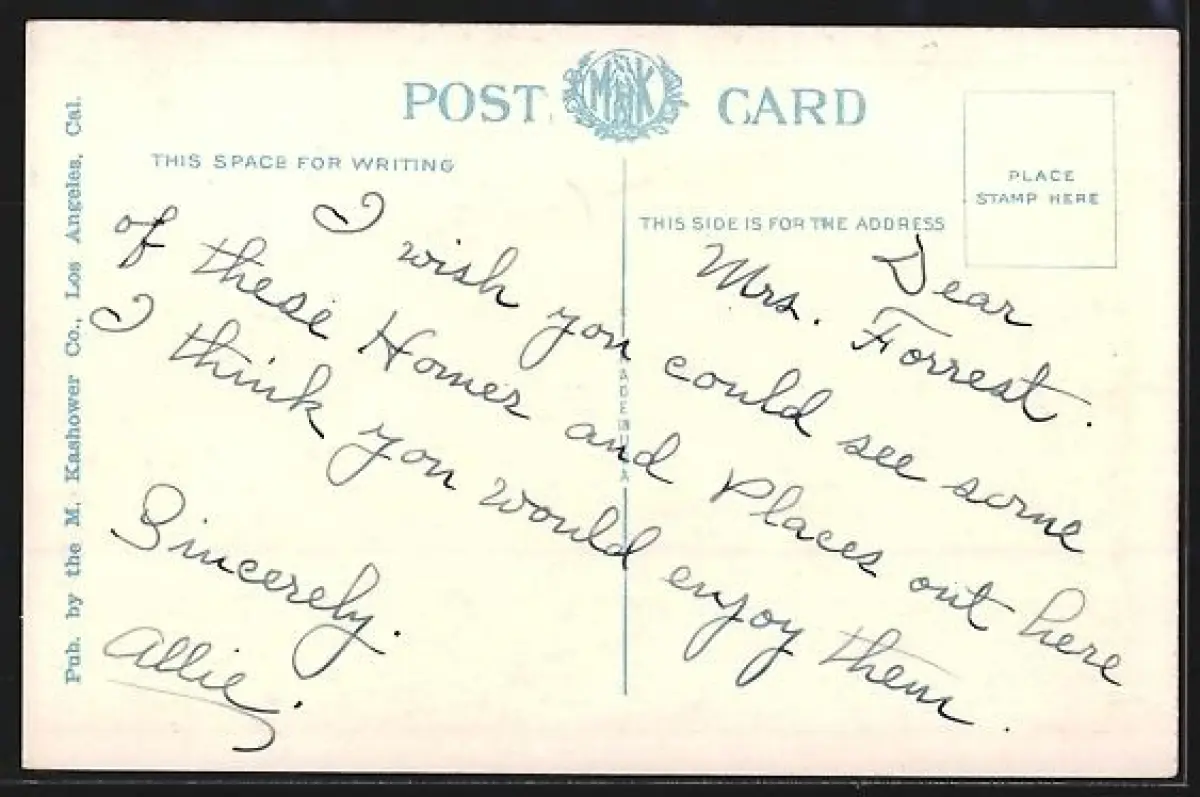 POST MK CARD
THIS SPACE FOR WRITING
THIS SIDE IS FOR THE ADDRESS
PLACE
STAMP HERE
Pub. by the M. Kashower Co., Los Angeles, Cal.
MADE IN U S A
Dear
Mrs. Forrest.
I wish you could see some
of these Homes and Places out here
I think you would enjoy them.
Sincerely.
Allie.